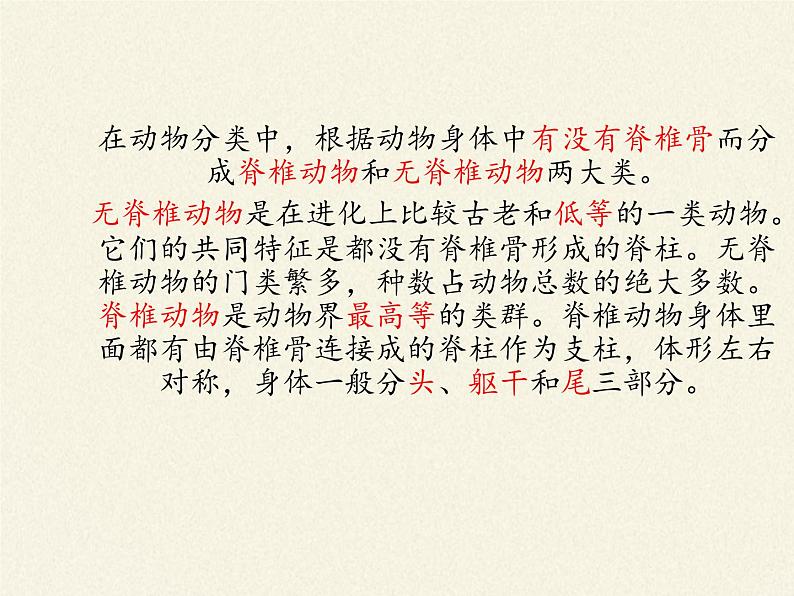 在动物分类中，根据动物身体中有没有脊椎骨而分
成脊椎动物和无脊椎动物两大类。
无脊椎动物是在进化上比较古老和低等的一类动物。
它们的共同特征是都没有脊椎骨形成的脊柱。无脊
椎动物的门类繁多，种数占动物总数的绝大多数。
脊椎动物是动物界最高等的类群。脊椎动物身体里
面都有由脊椎骨连接成的脊柱作为支柱，体形左右
对称，身体一般分头、躯干和尾三部分。